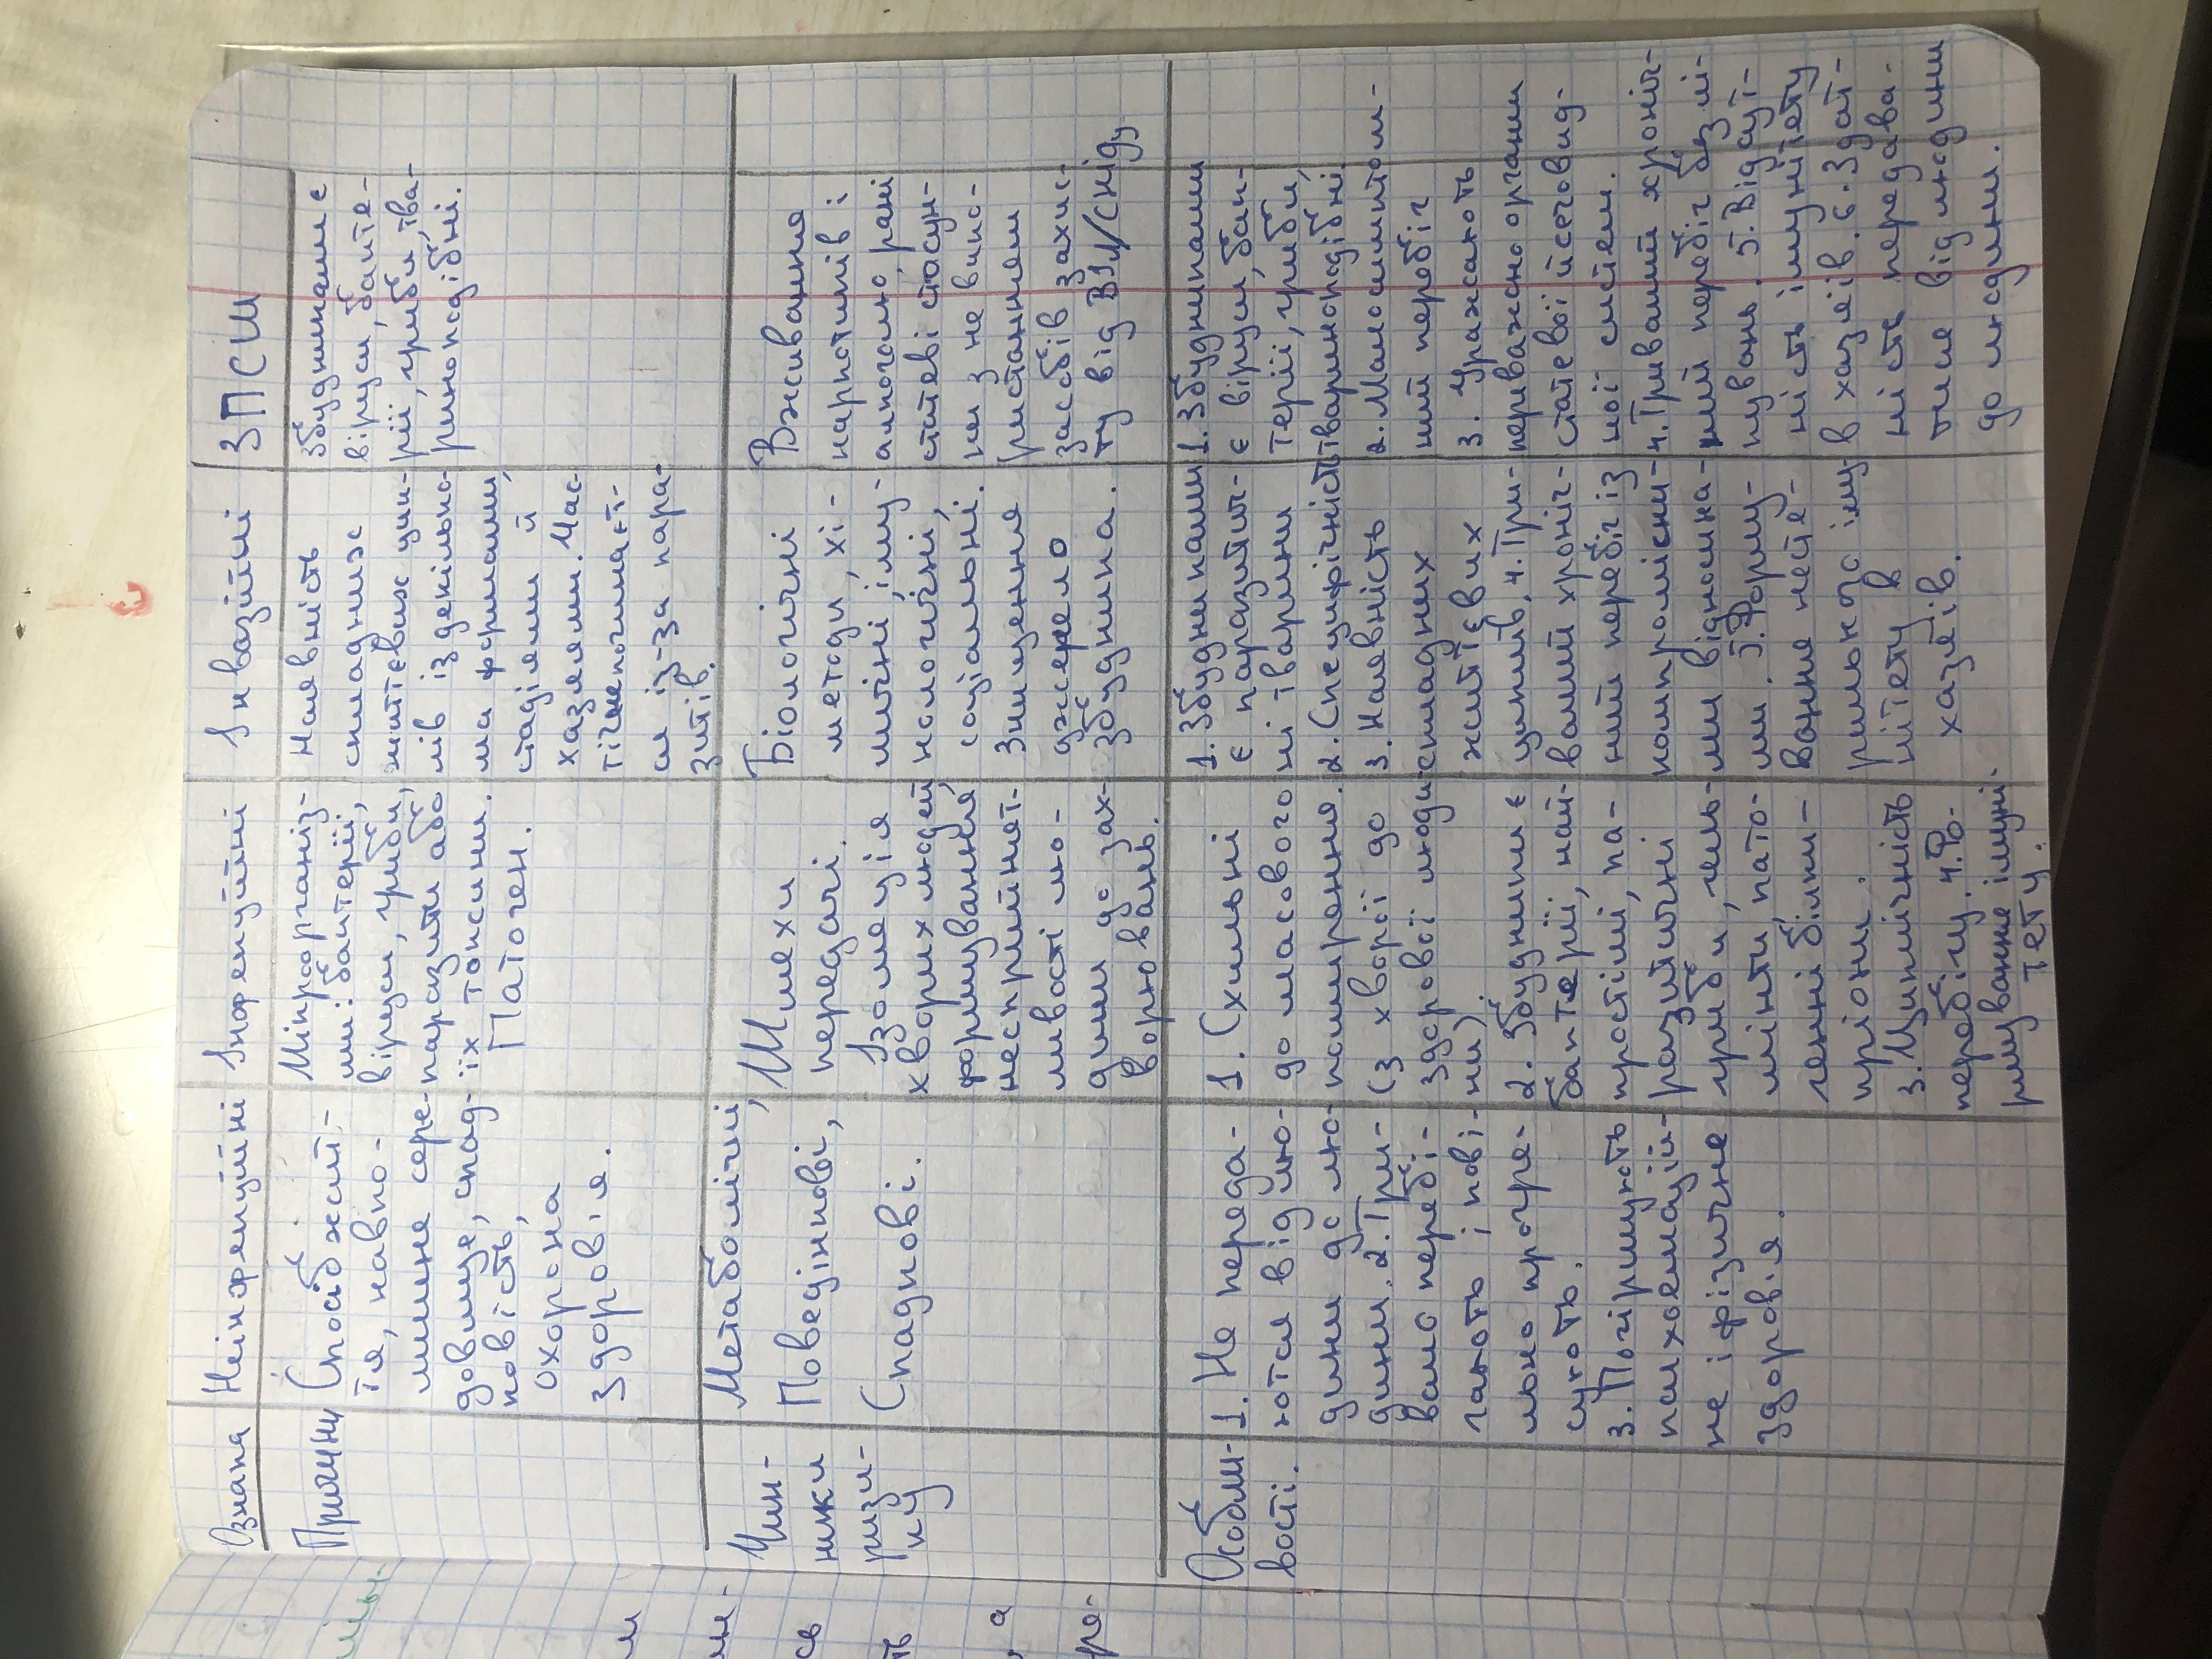 Ознака
Неінфекційні
Інфекційні
Інвазійні
ЗПСШ
Причини
Спосіб жит-
тя, навко-
лишнє сере-
довище, спад-
ковість,
охорона
здоров'я.
Мікроорганіз-
ми: бактерії,
віруси, гриби,
паразити або
їх токсини.
Патоген.
Наявність
складних
життєвих цик-
лів із декілько-
ма формами,
стадіями й
хазяями. Час-
тіше
си із-за пара-
зитів.
Збудниками є
віруси, бакте-
рії, гриби, тва-
ринноподібні.
Чин-
ники
ризи-
ку
Метаболічні,
Поведінкові,
Спадкові.
Шляхи
передачі.
Ізоляція
хворих людей
формування
несприйнят-
ливості лю-
дини до зах-
ворювань.
Біологічні
методи, хі-
мічні, іму-
нологічні,
соціальні.
Знищення
джерело
збудника.
Вживання
наркотиків і
алкоголю, рані
статеві стосун-
ки з не вико-
ристанням
засобів захис-
ту від ВІЛ/СНІДу
Особли-
вості.
1. Не переда-
ються від лю-
дини до лю-
дини. 2. Три-
вало перебі-
гають і пові-
льно прогре-
сують.
3. Погіршують
психоемоцій-
не і фізичне
здоров'я.
1. Схильні
до масового
поширення.
(з хворої до
здорової люди-
ни).
2. Збудники є
бактерії, най-
простіші, па-
разитичні
гриби, гель-
мінти, пато-
генні білки-
пріони.
3. Циклічність
перебігу. 4. Фо-
рмування імуні-
тету.
1. Збудниками
є паразитич-
ні тварини
2. Специфічність
3. Наявність
складних
життєвих
циклів. 4. Три-
валий хроніч-
ний перебіг із
компромісни-
ми відносина-
ми. 5. Форму-
вання несте-
рильного іму-
нітету в
хазяїв.
1. Збудниками
є віруси, бак-
терії, гриби,
твариноподібні.
2. Малосимптом-
ний перебіг
3. Уражають
переважно органи
статевої й сечовид-
ної систем.
4. Тривалий хроніч-
ний перебіг без лі-
кувань. 5. Відсут-
ність імунітету
в хазяїв. 6. Здат-
ність передава-
тися від людини
до людини.